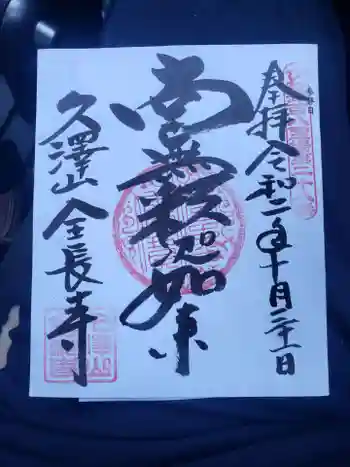 参拝日
奉拝 令和二年十月二十一日
南無釈迦如来
久澤山 全長寺